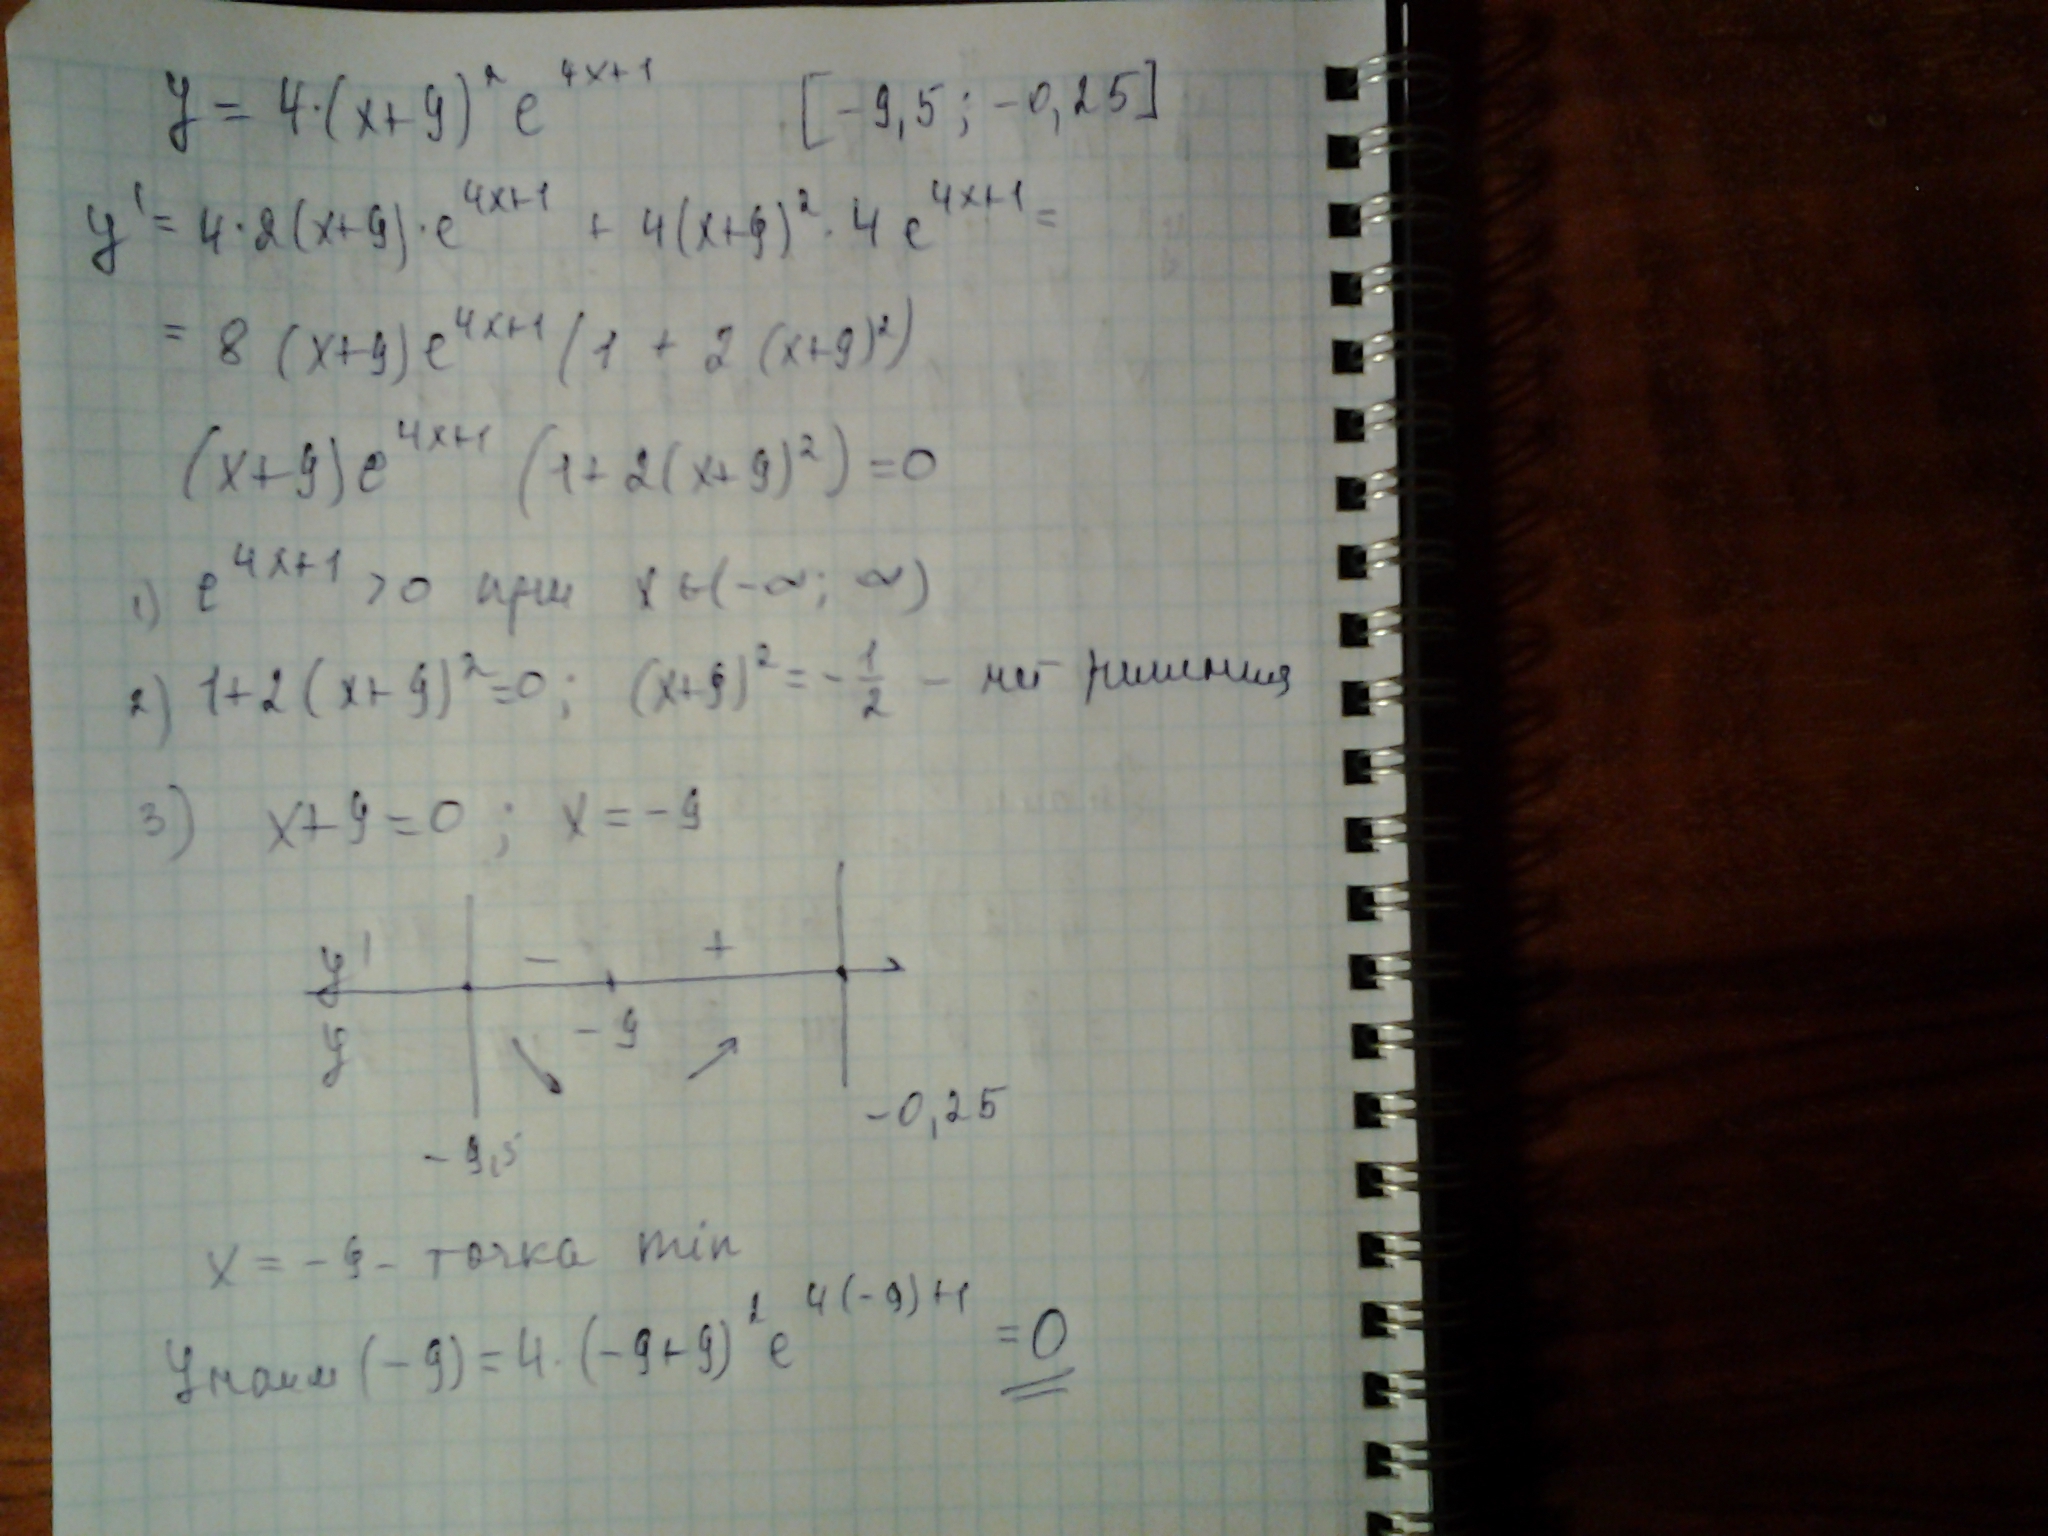 y = 4·(x+9)² e^{4x+1} [-9,5; -0,25]
y' = 4·2(x+9)·e^{4x+1} + 4(x+9)²·4 e^{4x+1} =
= 8 (x+9) e^{4x+1} (1 + 2 (x+9)²)
(x+9) e^{4x+1} (1+2(x+9)²) = 0
1) e^{4x+1} >0 при x ∈ (-∞; ∞)
2) 1+2(x+9)²=0; (x+9)² = -1/2 - нет решения
3) x+9=0; x=-9
y' - +
-9
y
-0,25
-9,5
x = -9 - точка min
y наим (-9) = 4·(-9+9)² e^{4(-9)+1} = 0